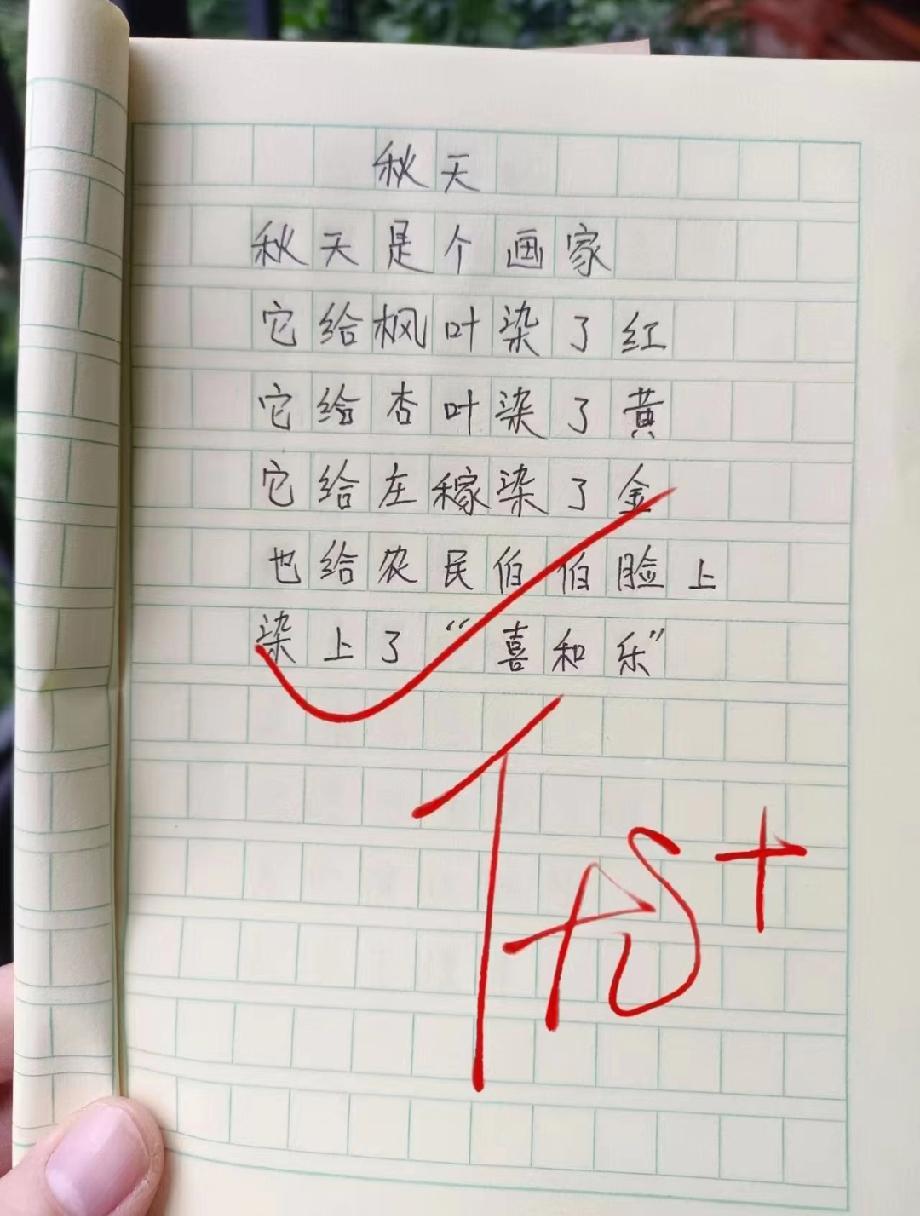 秋天
秋天是个画家
它给枫叶染了红
它给杏叶染了黄
它给左稼染了金
也给农民伯伯脸上
染上了“喜和乐”